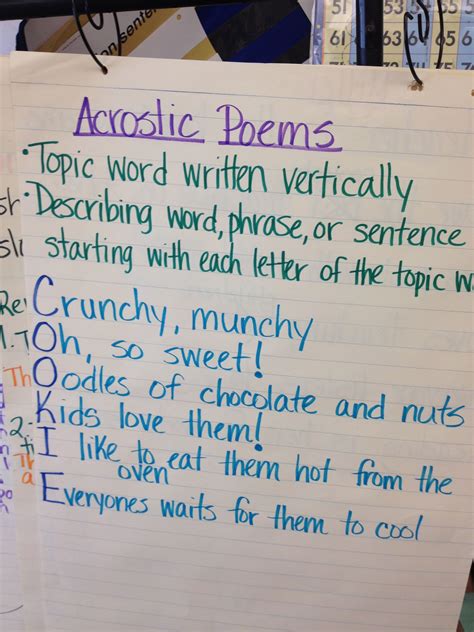 on sentence
51
61 63 64 65 6
Acrostic Poems
• Topic word written vertically
• Describing word, phrase, or sentence
starting with each letter of the topic w
Crunchy, munchy
Oh, so sweet!
Oodles of chocolate and nuts
Kids love them!
I like to eat them hot from the
oven
Everyones waits for them to cool